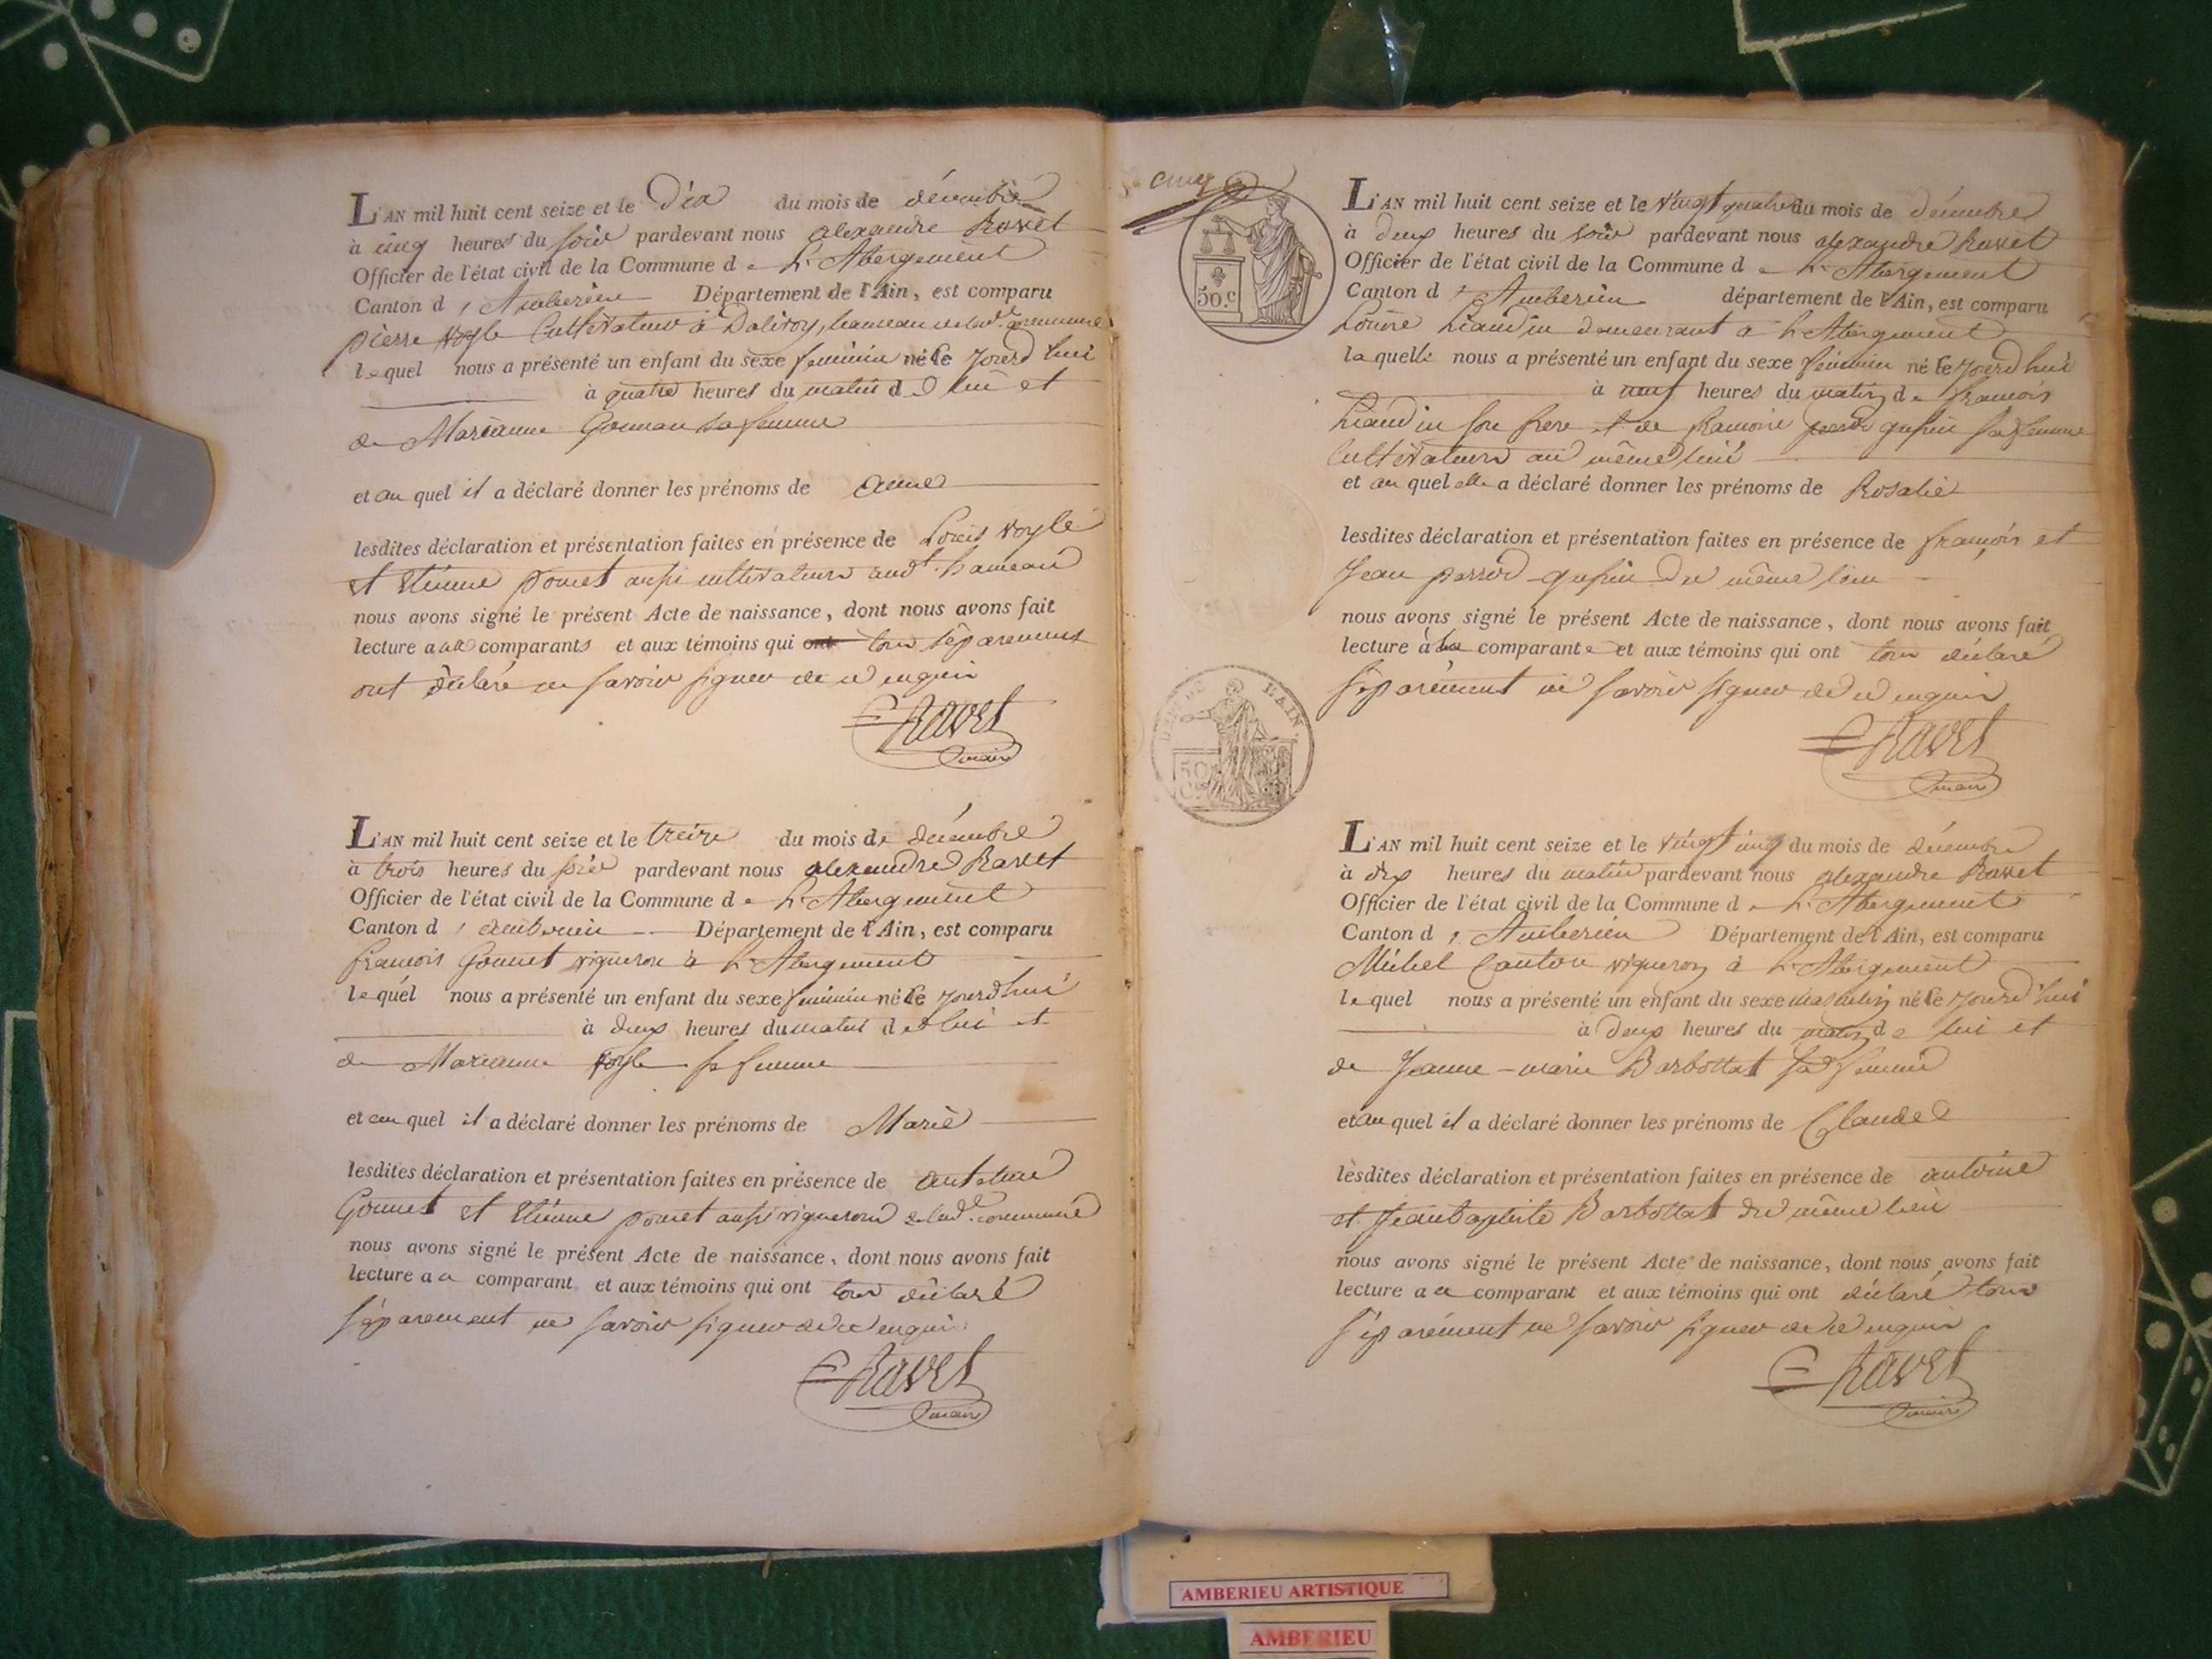 L'AN mil huit cent seize et le Dix du mois de décembre
à cinq heures du soir pardevant nous alexandre Ravet
Officier de l'état civil de la Commune de L'Abergement
Canton d'Amberieu Département de l'Ain, est comparu
pierre Cultivateur à hameau de lad.e commune
lequel nous a présenté un enfant du sexe feminin né ce jourd'hui
à quatre heures du matin de lui et
de Marianne sa femme
et au quel il a déclaré donner les prénoms de anne
lesdites déclaration et présentation faites en présence de Louis
et Etienne pomet aussi cultivateurs aud.t hameau
nous avons signé le présent Acte de naissance, dont nous avons fait
lecture aux comparants et aux témoins qui ont tous séparement
ont déclaré ne savoir signer de ce enquis
Ravet
maire
L'AN mil huit cent seize et le treize du mois de décembre
à trois heures du soir pardevant nous alexandre Ravet
Officier de l'état civil de la Commune de L'Abergement
Canton d'amberieu Département de l'Ain, est comparu
francois Gonnet vigneron à L'Abergement
lequel nous a présenté un enfant du sexe feminin né ce jourd'hui
à deux heures du matin de lui et
de Marianne sa femme
et au quel il a déclaré donner les prénoms de Marie
lesdites déclaration et présentation faites en présence de antelme
Gonnet et Etienne pomet aussi vignerons de lad.e commune
nous avons signé le présent Acte de naissance, dont nous avons fait
lecture au comparant et aux témoins qui ont tous déclaré
séparement ne savoir signer de ce enquis
Ravet
maire
cinq
50.c
L'AN mil huit cent seize et le vingt quatre du mois de décembre
à deux heures du soir pardevant nous alexandre Ravet
Officier de l'état civil de la Commune de L'Abergement
Canton d'Amberieu département de l'Ain, est comparu
Louise Liaudin demeurant à L'Abergement
laquelle nous a présenté un enfant du sexe féminin né ce jourd'hui
à neuf heures du matin de francois
Liaudin son frere et de sa femme
Cultivateurs au même lieu
et au quel elle a déclaré donner les prénoms de Rosalie
lesdites déclaration et présentation faites en présence de françois et
Jean du même lieu
nous avons signé le présent Acte de naissance, dont nous avons fait
lecture à la comparante et aux témoins qui ont tous déclaré
séparément ne savoir signer de ce enquis
Ravet
maire
DEP. DE L'AIN.
50 C.
L'AN mil huit cent seize et le vingt cinq du mois de décembre
à dix heures du matin pardevant nous alexandre Ravet
Officier de l'état civil de la Commune de L'Abergement
Canton d'Amberieu Département de l'Ain, est comparu
Michel Canton vigneron à L'Abergement
lequel nous a présenté un enfant du sexe masculin né ce jourd'hui
à deux heures du matin de lui et
de Jeanne-marie Barbottat sa femme
et au quel il a déclaré donner les prénoms de Claude
lesdites déclaration et présentation faites en présence de antoine
et Jean baptiste Barbottat du même lieu
nous avons signé le présent Acte de naissance, dont nous avons fait
lecture au comparant et aux témoins qui ont déclaré tous
séparément ne savoir signer de ce enquis
Ravet
maire
AMBERIEU ARTISTIQUE
AMBERIEU